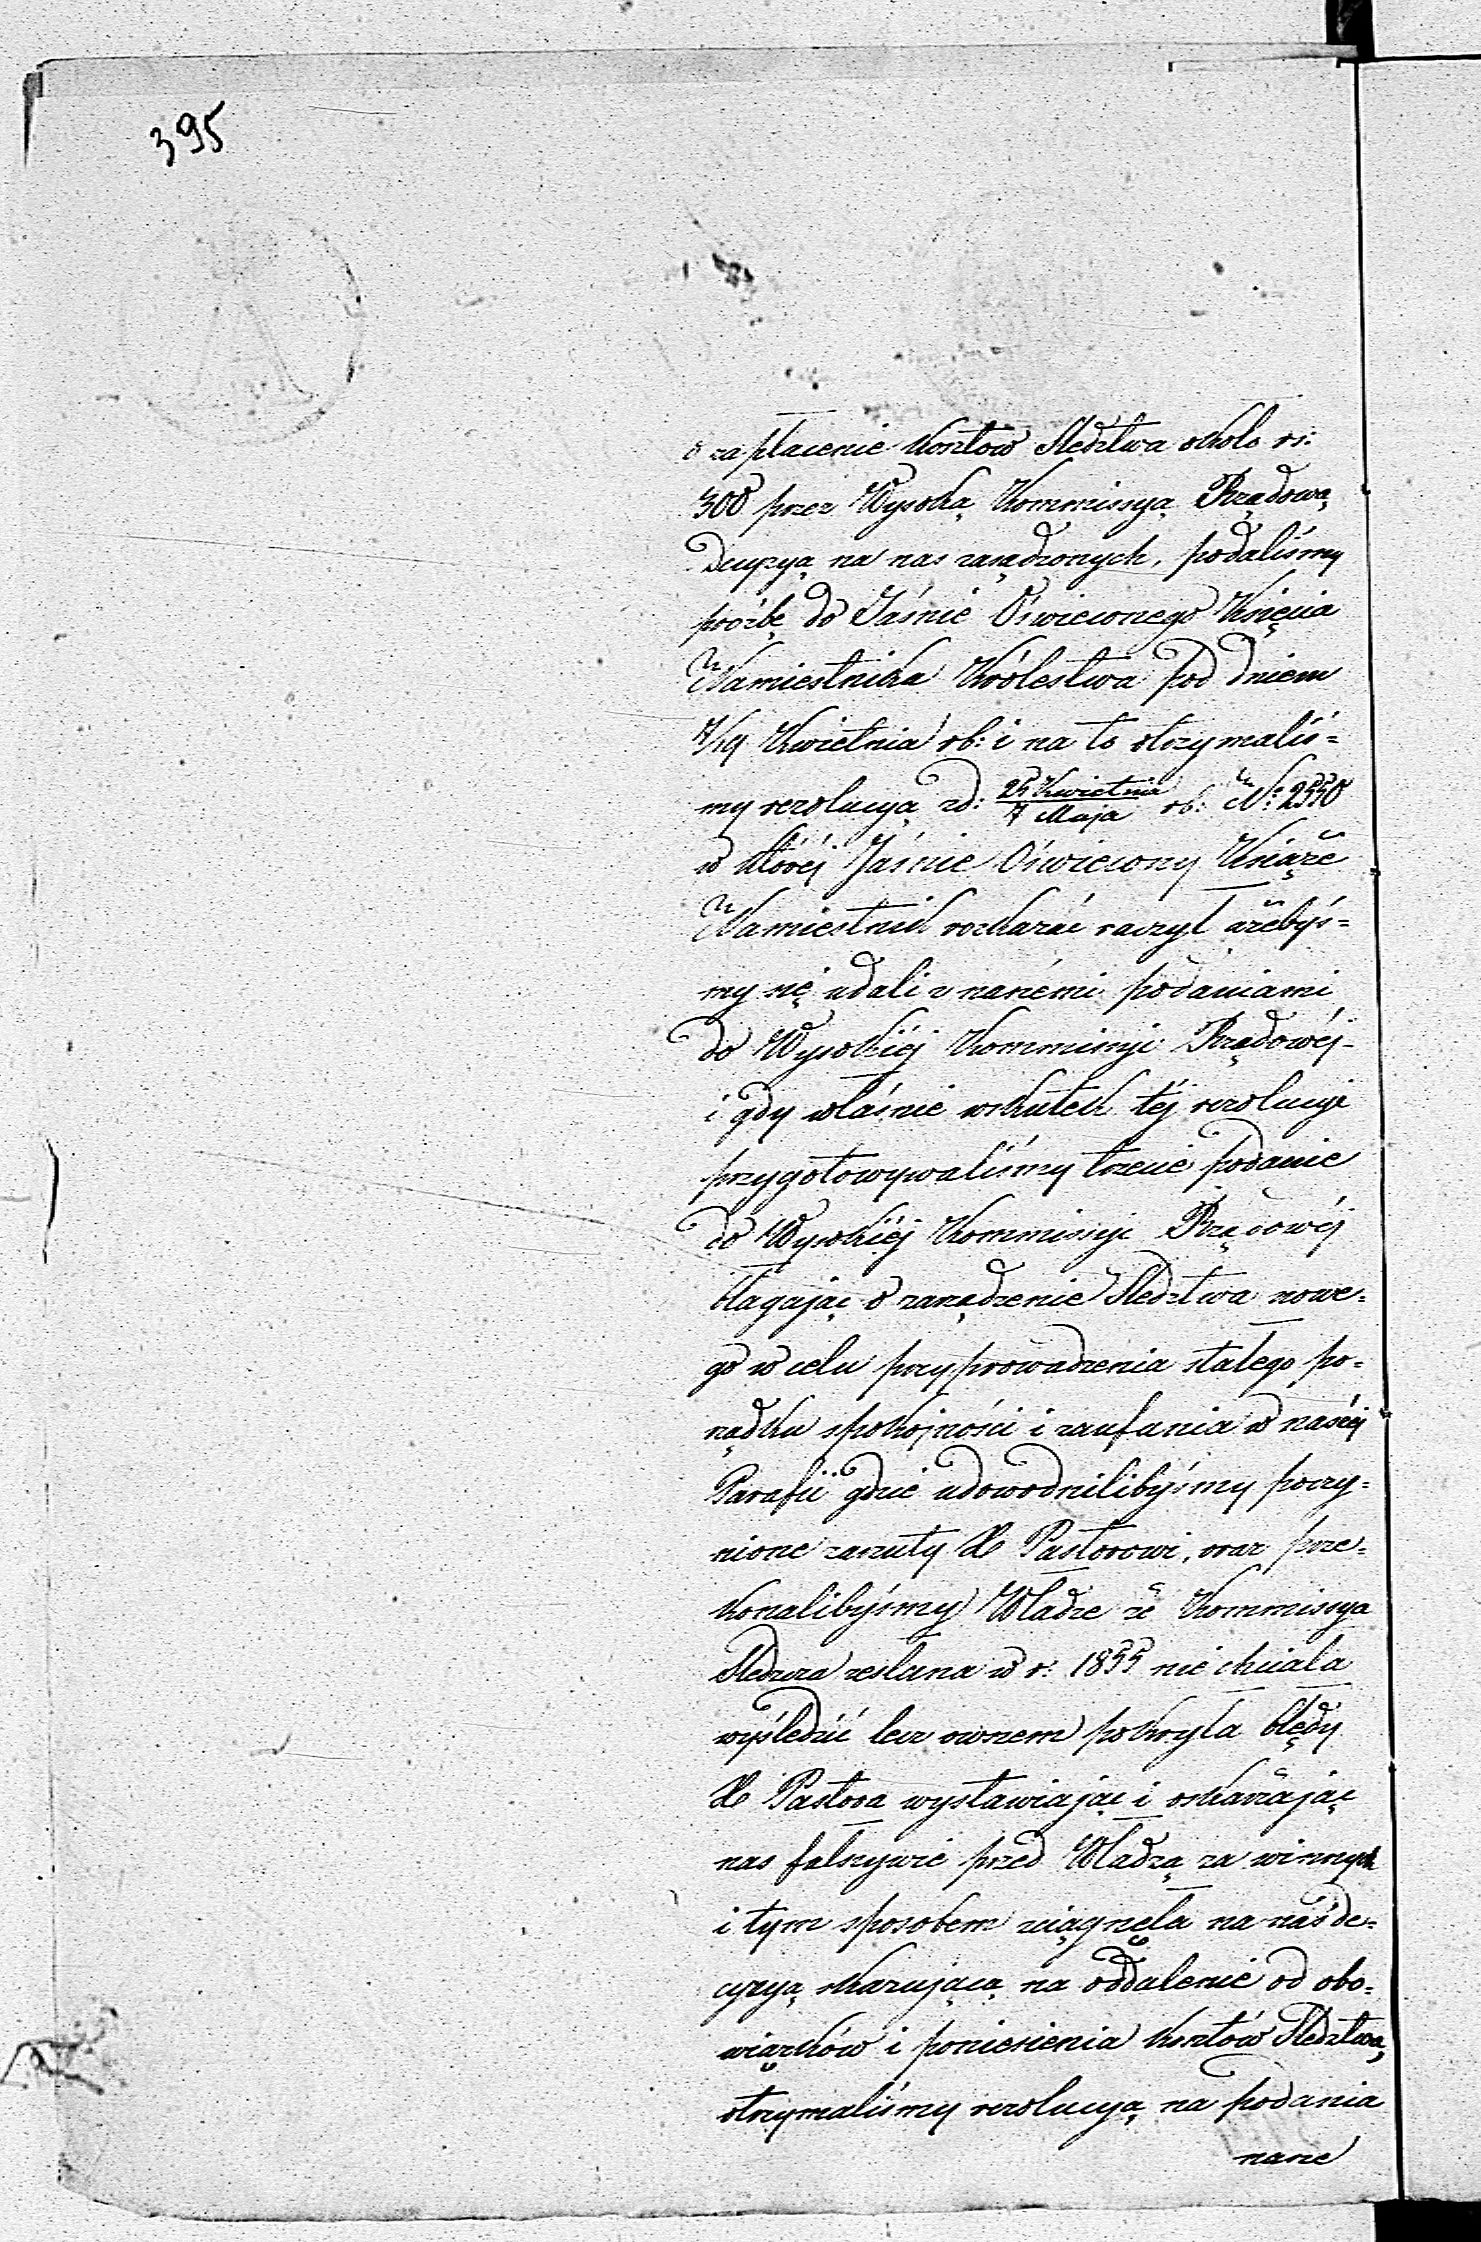 395
o zapłacenie kosztów Śledztwa około rs:
300 przez Wysoką Kommissyą Rządową
Decyzyą na nas zasądzonych, podaliśmy
prozbę do Jaśnie Oświeconego Księcia
Namiestnika Królestwa pod dniem
7/19 Kwietnia rb: i na to otrzymaliś=
my rezolucyą zd: 25 Kwietnia/7 Maja rb: N: 2550
w któréj Jaśnie Oświecony Książe
Namiestnik rozkazać raczył ażebyś=
my się udali z naszémi podaniami
do Wysokiéj Kommissyi Rządowéj-
i gdy właśnie wskutek téj rezolucyi
przygotowywaliśmy trzecie podanie
do Wysokiéj Kommissyi Rządowéj
błagając o zarządzenie Śledztwa nowe=
go w celu przyprowadzenia stałego po=
rządku spokojności i zaufania w naszéj
Parafii gdzie udowodnilibyśmy poczy=
nione zarzuty X Pastorowi, oraz prze=
konalibyśmy Władze że Kommissya
Śledcza zesłana w r: 1855 nie chciała
wyśledzić lecz owszem pokryła błędy
X Pastora wystawiając i oskarżając
nas fałszywie przed Władzą za winnych
i tym sposobem ściągnęła na nas de=
cyzyą skazującą na oddalenie od obo=
wiązków i poniesienia kosztów Śledztwa,
otrzymaliśmy rezolucyą na podania
nasze